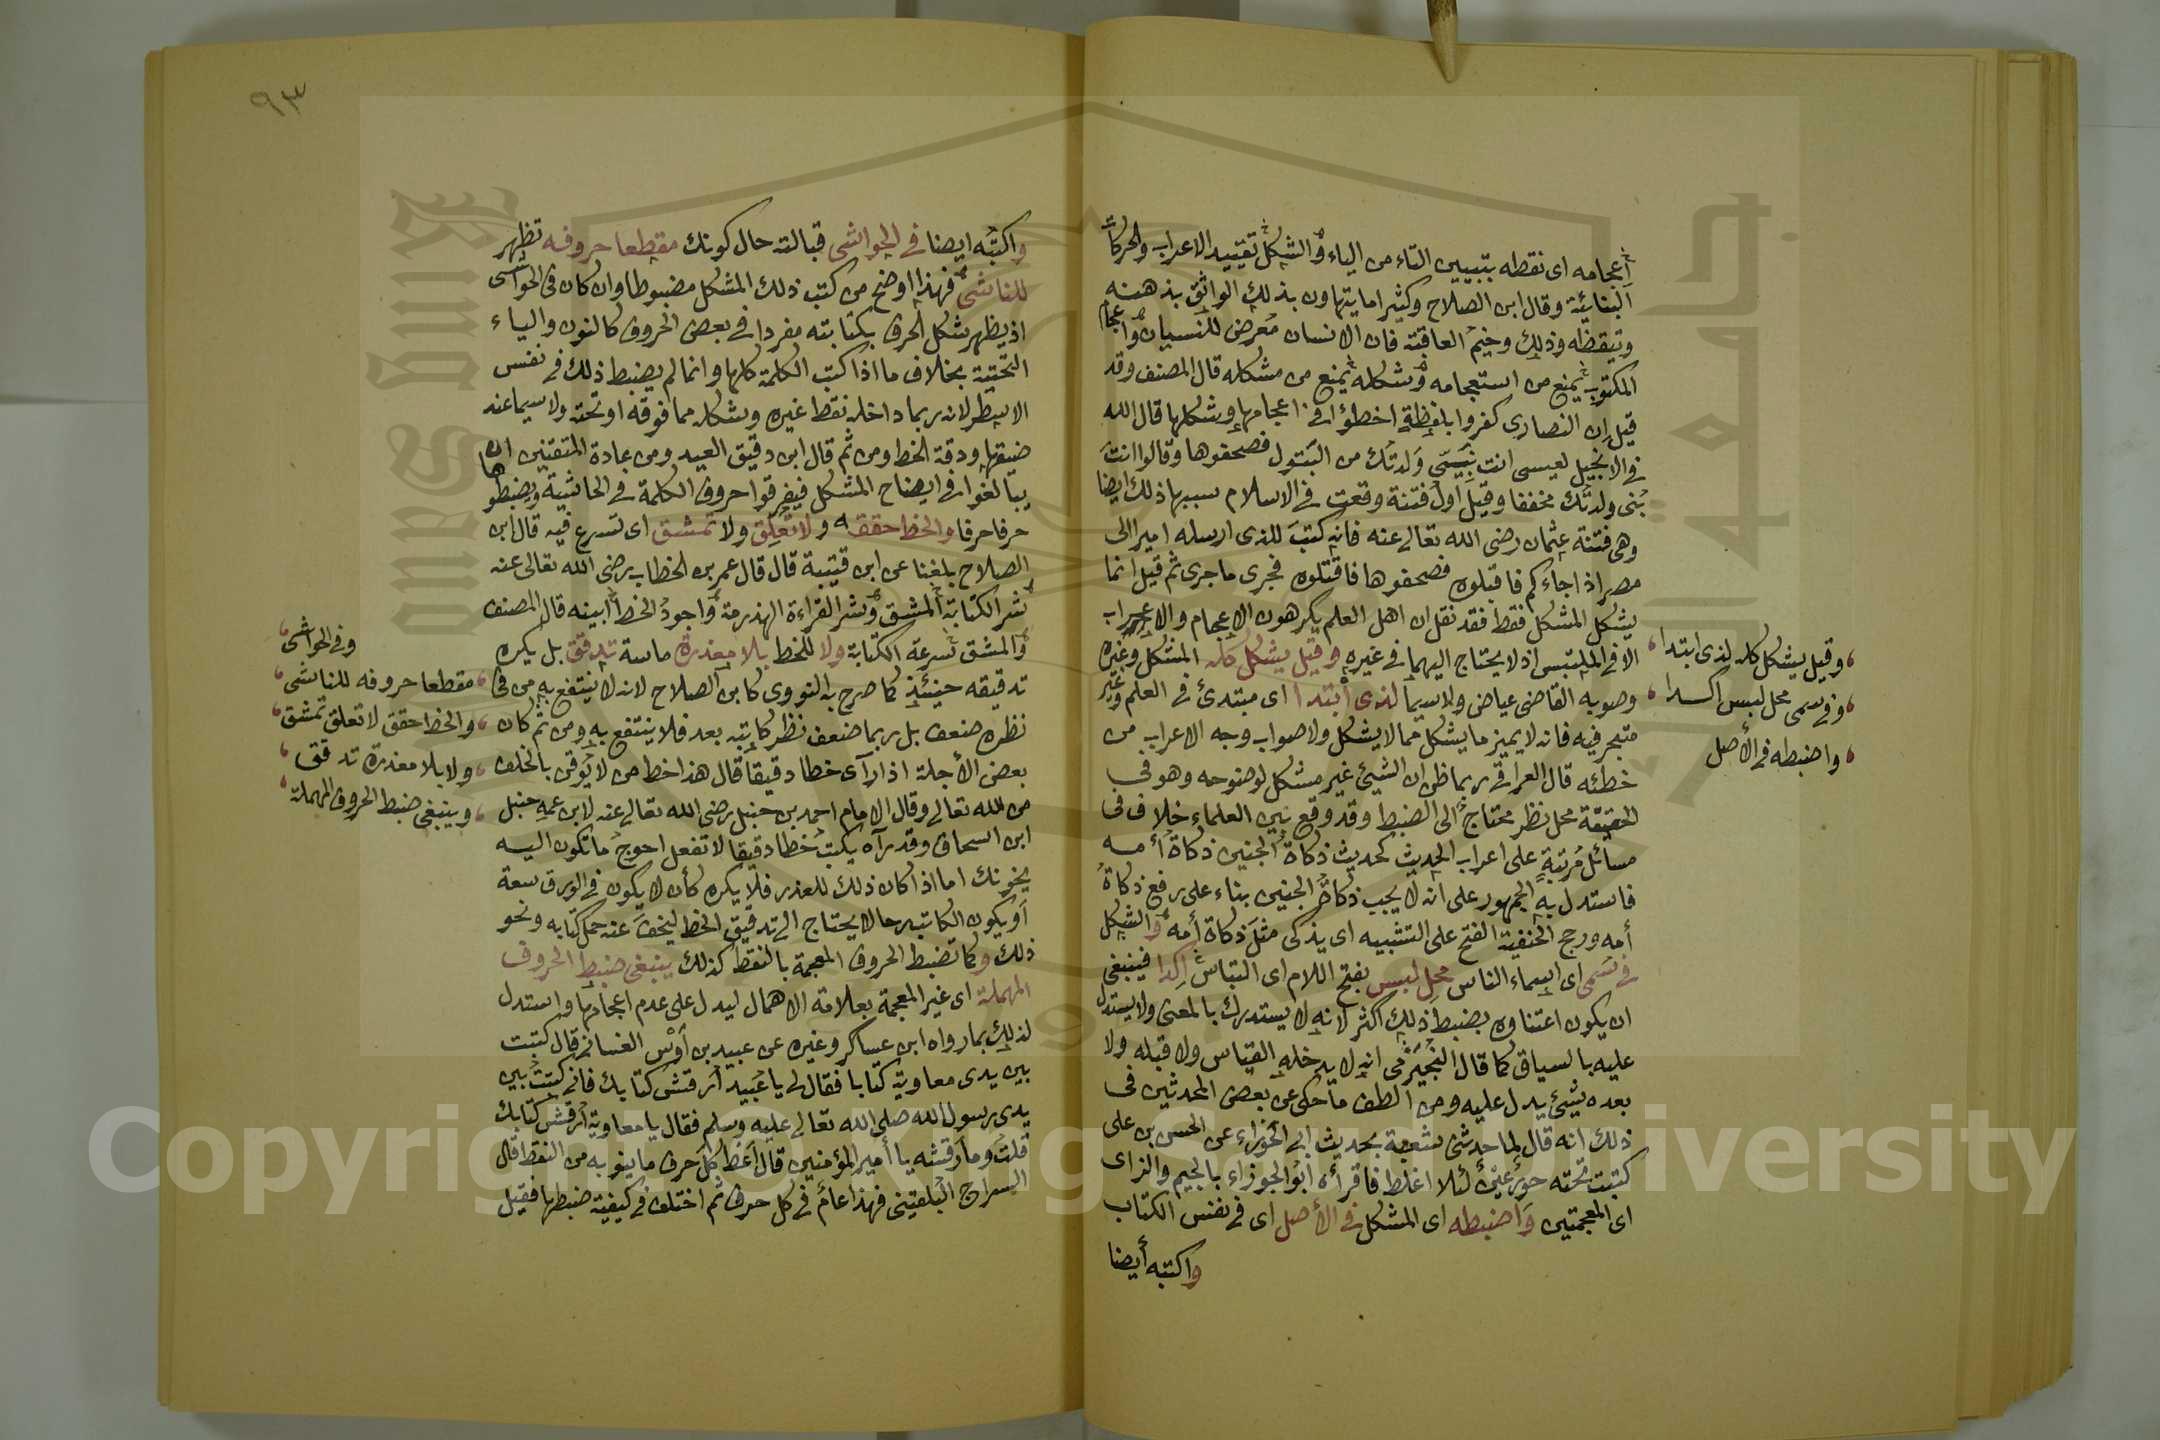 اعجامه اى نقطه بتبيين التاء من الياء والشكل تقييد الاعراب والحركات
البنائية وقال ابن الصلاح وكثيرا ما يتهاون بذلك الواثق بذهنه
وتيقظه وذلك وخيم العاقبة فان الانسان معرض للنسيان واعجام
المكتوب يمنع من استعجامه وشكله يمنع من مشكله قال المصنف وقد
قيل ان النصارى كفروا بلفظة اخطؤا فى اعجامها وشكلها قال الله
فى الانجيل لعيسى انت نبيي ولدتك من البتول فصحفوها وقالوا انت
بنى ولدتك مخففا وقيل اول فتنة وقعت فى الاسلام سببها ذلك ايضا
وهى فتنة عثمان رضى الله تعالى عنه فانه كتب للذى ارسله اميرا الى
مصر اذا جاءكم فاقبلوه فصحفوها فاقتلوه فجرى ما جرى ثم قيل انما
يشكل المشكل فقط فقد نقل ان اهل العلم يكرهون الاعجام والاعراب
الا فى الملتبس اذ لا يحتاج اليهما فى غيره وقيل يشكل كله المشكل وغيره
وصوبه القاضى عياض ولاسيما لذى ابتدا اى مبتدئ فى العلم وغير
متبحر فيه فانه لا يميز ما يشكل مما لا يشكل ولا صواب وجه الاعراب من
خطئه قال العراقى ربما ظن ان الشيئ غير مشكل لوضوحه وهو فى
الحقيقة محل نظر محتاج الى الضبط وقد وقع بين العلماء خلاف فى
مسائل مرتبة على اعراب الحديث كحديث ذكاة الجنين ذكاة أمه
فاستدل به الجمهور على انه لا يجب ذكاة الجنين بناء على رفع ذكاة
أمه ورجح الحنفية الفتح على التشبيه اى يذكى مثل ذكاة أمه والشكل
فى سمى اى اسماء الناس محل لبس بفتح اللام اى التباس اكدا فينبغى
ان يكون اعتناوه بضبط ذلك اكثر لانه لا يستدرك بالمعنى ولا يستدل
عليه بالسياق كما قال النجيرمى انه لا يدخله القياس ولا قبله ولا
بعده شيئ يدل عليه ومن الطف ما حكى عن بعض المحدثين فى
ذلك انه قال لما حدثنى شعبة بحديث ابى الحوراء عن الحسن بن على
كتبت تحته حور عين لئلا اغلط فاقرأه ابو الجوزاء بالجيم والزاى
اى المعجمتين واضبطه اى المشكل فى الأصل اى فى نفس الكتاب
واكتبه أيضا
وقيل يشكل كله لذى ابتدا
وفى سمى محل لبس اكدا
واضبطه فى الأصل
٩٣
واكتبه ايضا فى الحواشى قبالته حال كونك مقطعا حروفه تظهر
للناشى فهذا اوضح من كتب ذلك المشكل مضبوطا وان كان فى الحواشى
اذ يظهر شكل الحرف بكتابته مفردا فى بعض الحروف كالنون والياء
التحتية بخلاف ما اذا كتب الكلمة كلها وانما لم يضبط ذلك فى نفس
الاسطر لانه ربما داخله نقط غيره وشكله مما فوقه او تحته ولاسيما عند
ضيقها ودقة الخط ومن ثم قال ابن دقيق العيد ومن عادة المتقنين ان
يبالغوا فى ايضاح المشكل فيفرقوا حروف الكلمة فى الحاشية ويضبطوها
حرفا حرفا والخط حققه ولا تعلق ولا تمشق اى تسرع فيه قال ابن
الصلاح بلغنا عن ابن قتيبة قال قال عمر بن الخطاب رضى الله تعالى عنه
شر الكتابة المشق وشر القراءة الهذرمة واجود الخط ابينه قال المصنف
والمشق سرعة الكتابة ولا للخط بلا معذرة ماسة تدقق بل يكره
تدقيقه حينئذ كما صرح به النووى كابن الصلاح لانه لا ينتفع به من فى
نظره ضعف بل ربما ضعف نظر كاتبه بعد فلا ينتفع به ومن ثم كان
بعض الأجلة اذا رآى خطا دقيقا قال هذا خط من لا يوقن بالخلف
من الله تعالى وقال الامام احمد بن حنبل رضى الله تعالى عنه لابن عمه حنبل
ابن اسحاق وقد رآه يكتب خطا دقيقا لا تفعل احوج ما تكون اليه
يخونك اما اذا كان ذلك للعذر فلا يكره كأن لا يكون فى الورق سعة
او يكون الكاتب رحالا يحتاج الى تدقيق الخط ليخف عنه حمل كتابه ونحو
ذلك وكما تضبط الحروف المعجمة بالنقط كذلك ينبغى ضبط الحروف
المهملة اى غير المعجمة بعلامة الاهمال ليدل على عدم اعجامها واستدل
لذلك بما رواه ابن عساكر وغيره عن عبيد بن أوس الغسانى قال كتبت
بين يدى معاوية كتابا فقال لى يا عبيد أرقش كتابك فانى كتبت بين
يدى رسول الله صلى الله تعالى عليه وسلم فقال يا معاوية أرقش كتابك
قلت وما رقشه يا أمير المؤمنين قال أعط كل حرف ما ينوبه من النقط قال
السراج البلقينى فهذا عام فى كل حرف ثم اختلف فى كيفية ضبطها فقيل
وفى الحواشى
مقطعا حروفه للناشى
والخط حقق لا تعلق تمشق
ولا بلا معذرة تدقق
وينبغى ضبط الحروف المهملة
Copyright © King Saud University